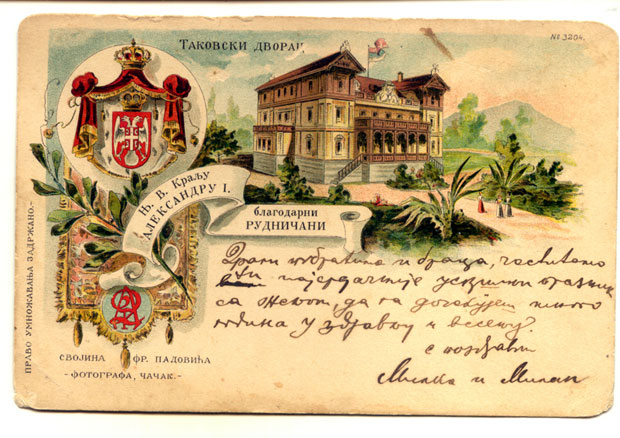 № 3204.
ТАКОВСКИ ДВОРАЦ
Њ. В. КРАЉУ
АЛЕКСАНДРУ I.
благодарни
РУДНИЧАНИ
ПРАВО УМНОЖАВАЊА ЗАДРЖАНО.-
СВОЈИНА ФР. ПАДОВИЋА
- ФОТОГРАФА, ЧАЧАК.-
Драги побратиме и браца, честитамо
ти најсрдачније ускршњи празник
са женом, да га дочекујеш много
година у здрављу и весељу
с поздравом
Милка и Милан